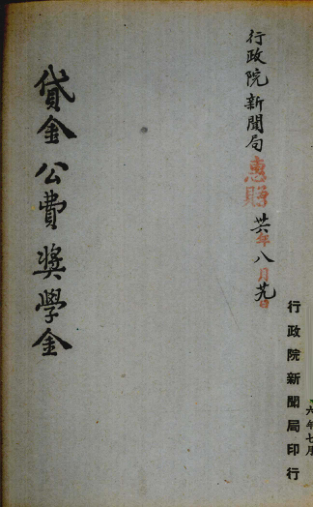 行政院新聞局惠贈 卅六年八月廿九日
貸金公費獎學金
行政院新聞局印行
六年七月